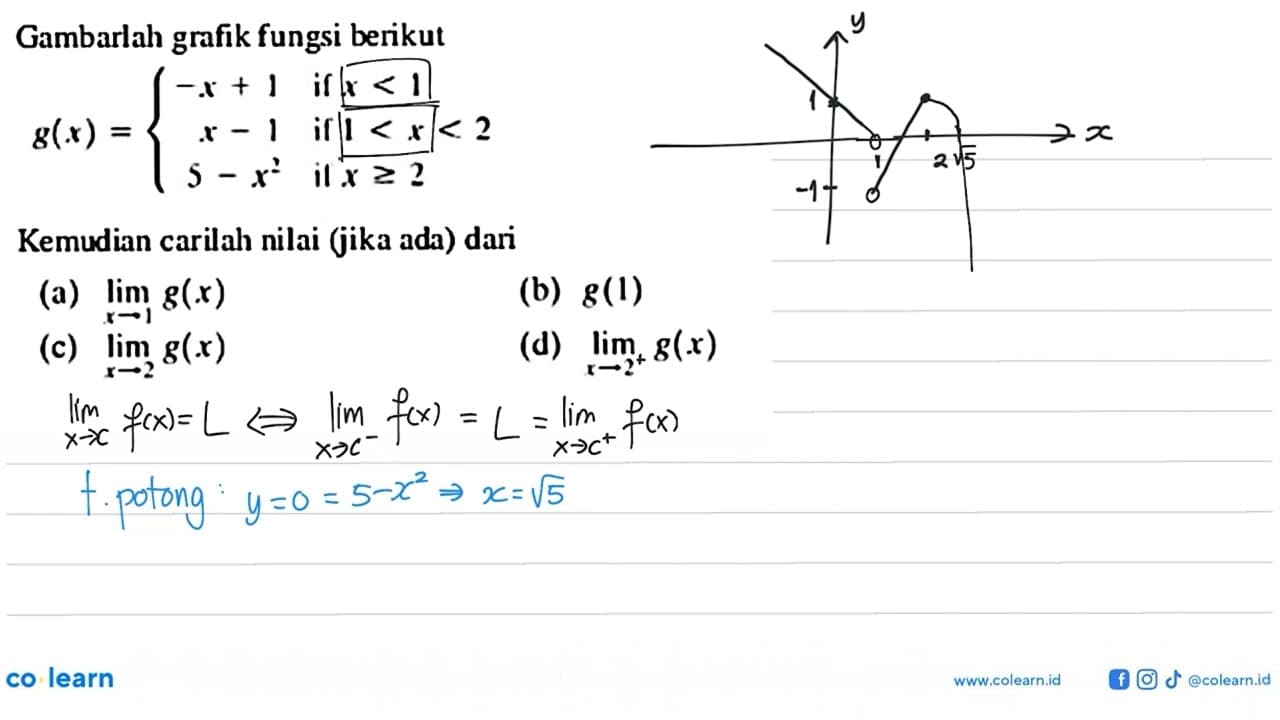 Gambarlah grafik fungsi berikut
g(x) = { -x + 1 if x < 1
x - 1 if 1 < x < 2
5 - x² if x ≥ 2
Kemudian carilah nilai (jika ada) dari
(a) lim x→1 g(x) (b) g(1)
(c) lim x→2 g(x) (d) lim x→2⁺ g(x)
lim x→c f(x) = L ⇔ lim x→c⁻ f(x) = L = lim x→c⁺ f(x)
t. potong : y = 0 = 5 - x² ⇒ x = √5
y
1
x
1
2 √5
-1
co learn
www.colearn.id
@colearn.id